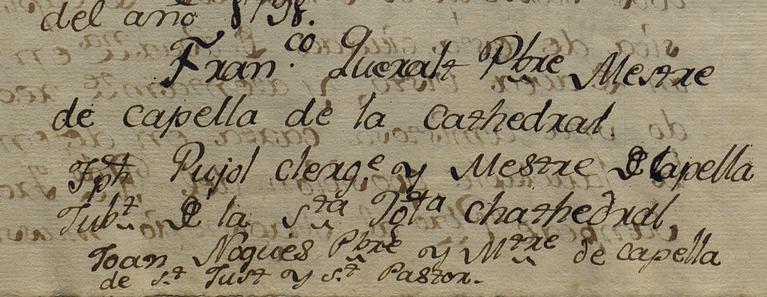 del año 1798.
Fran.co Queralt Pbre Mestre
de capella de la Cathedral
Jph Pujol clerge y Mestre de Capella
Jubt de la sta Iota chathedral
Joan Nogues Pbre y Mtre de capella
de St Just y St Pastor.